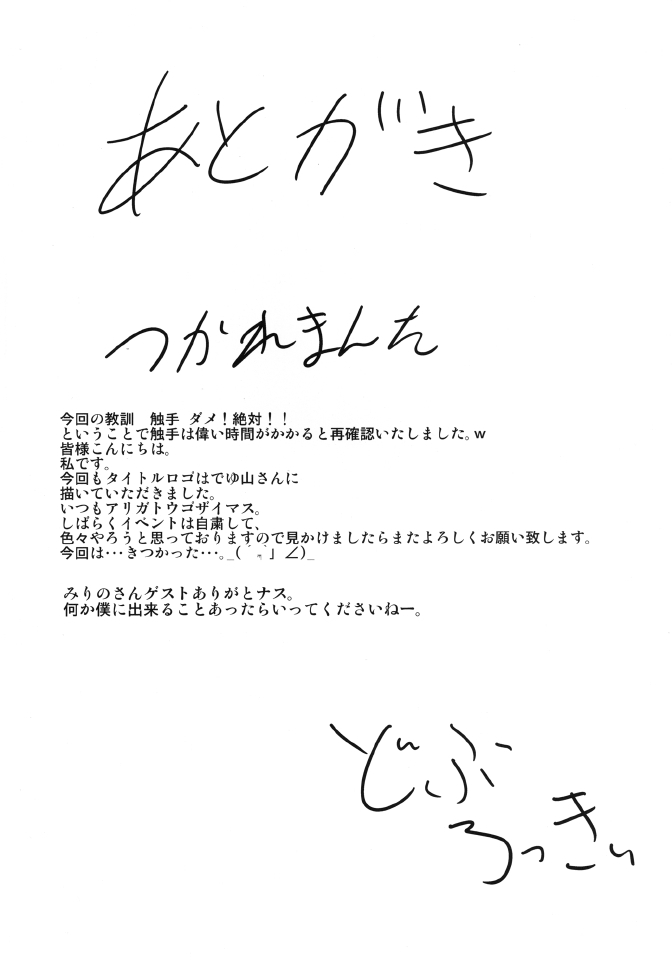 あとがき
つかれまんた
今回の教訓　触手 ダメ！絶対！！
ということで触手は偉い時間がかかると再確認いたしました。w
皆様こんにちは。
私です。
今回もタイトルロゴはでゆ山さんに
描いていただきました。
いつもアリガトウゴザイマス。
しばらくイベントは自粛して、
色々やろうと思っておりますので見かけましたらまたよろしくお願い致します。
今回は･･･きつかった･･･。_(´ཀ`」∠)_
みりのさんゲストありがとナス。
何か僕に出来ることあったらいってくださいねー。
どぶ
ろっきぃ